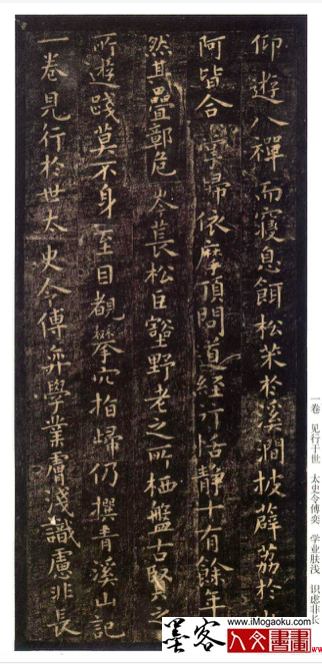 仰遊八禪而寢息餌松朮於溪澗披薜荔於
阿皆合掌歸依摩頂問道經行恬靜十有餘年
然其疊鄣危岑萇松巨壑野老之所栖盤古賢之
所遊踐莫不身至目覩攀穴指歸仍撰青溪山記
一卷見行於世太史令傅弈學業膚淺識慮非長
一卷 见行于世 太史令傅奕 学业肤浅 识虑非长
www.iMogaoku.com
墨客
www